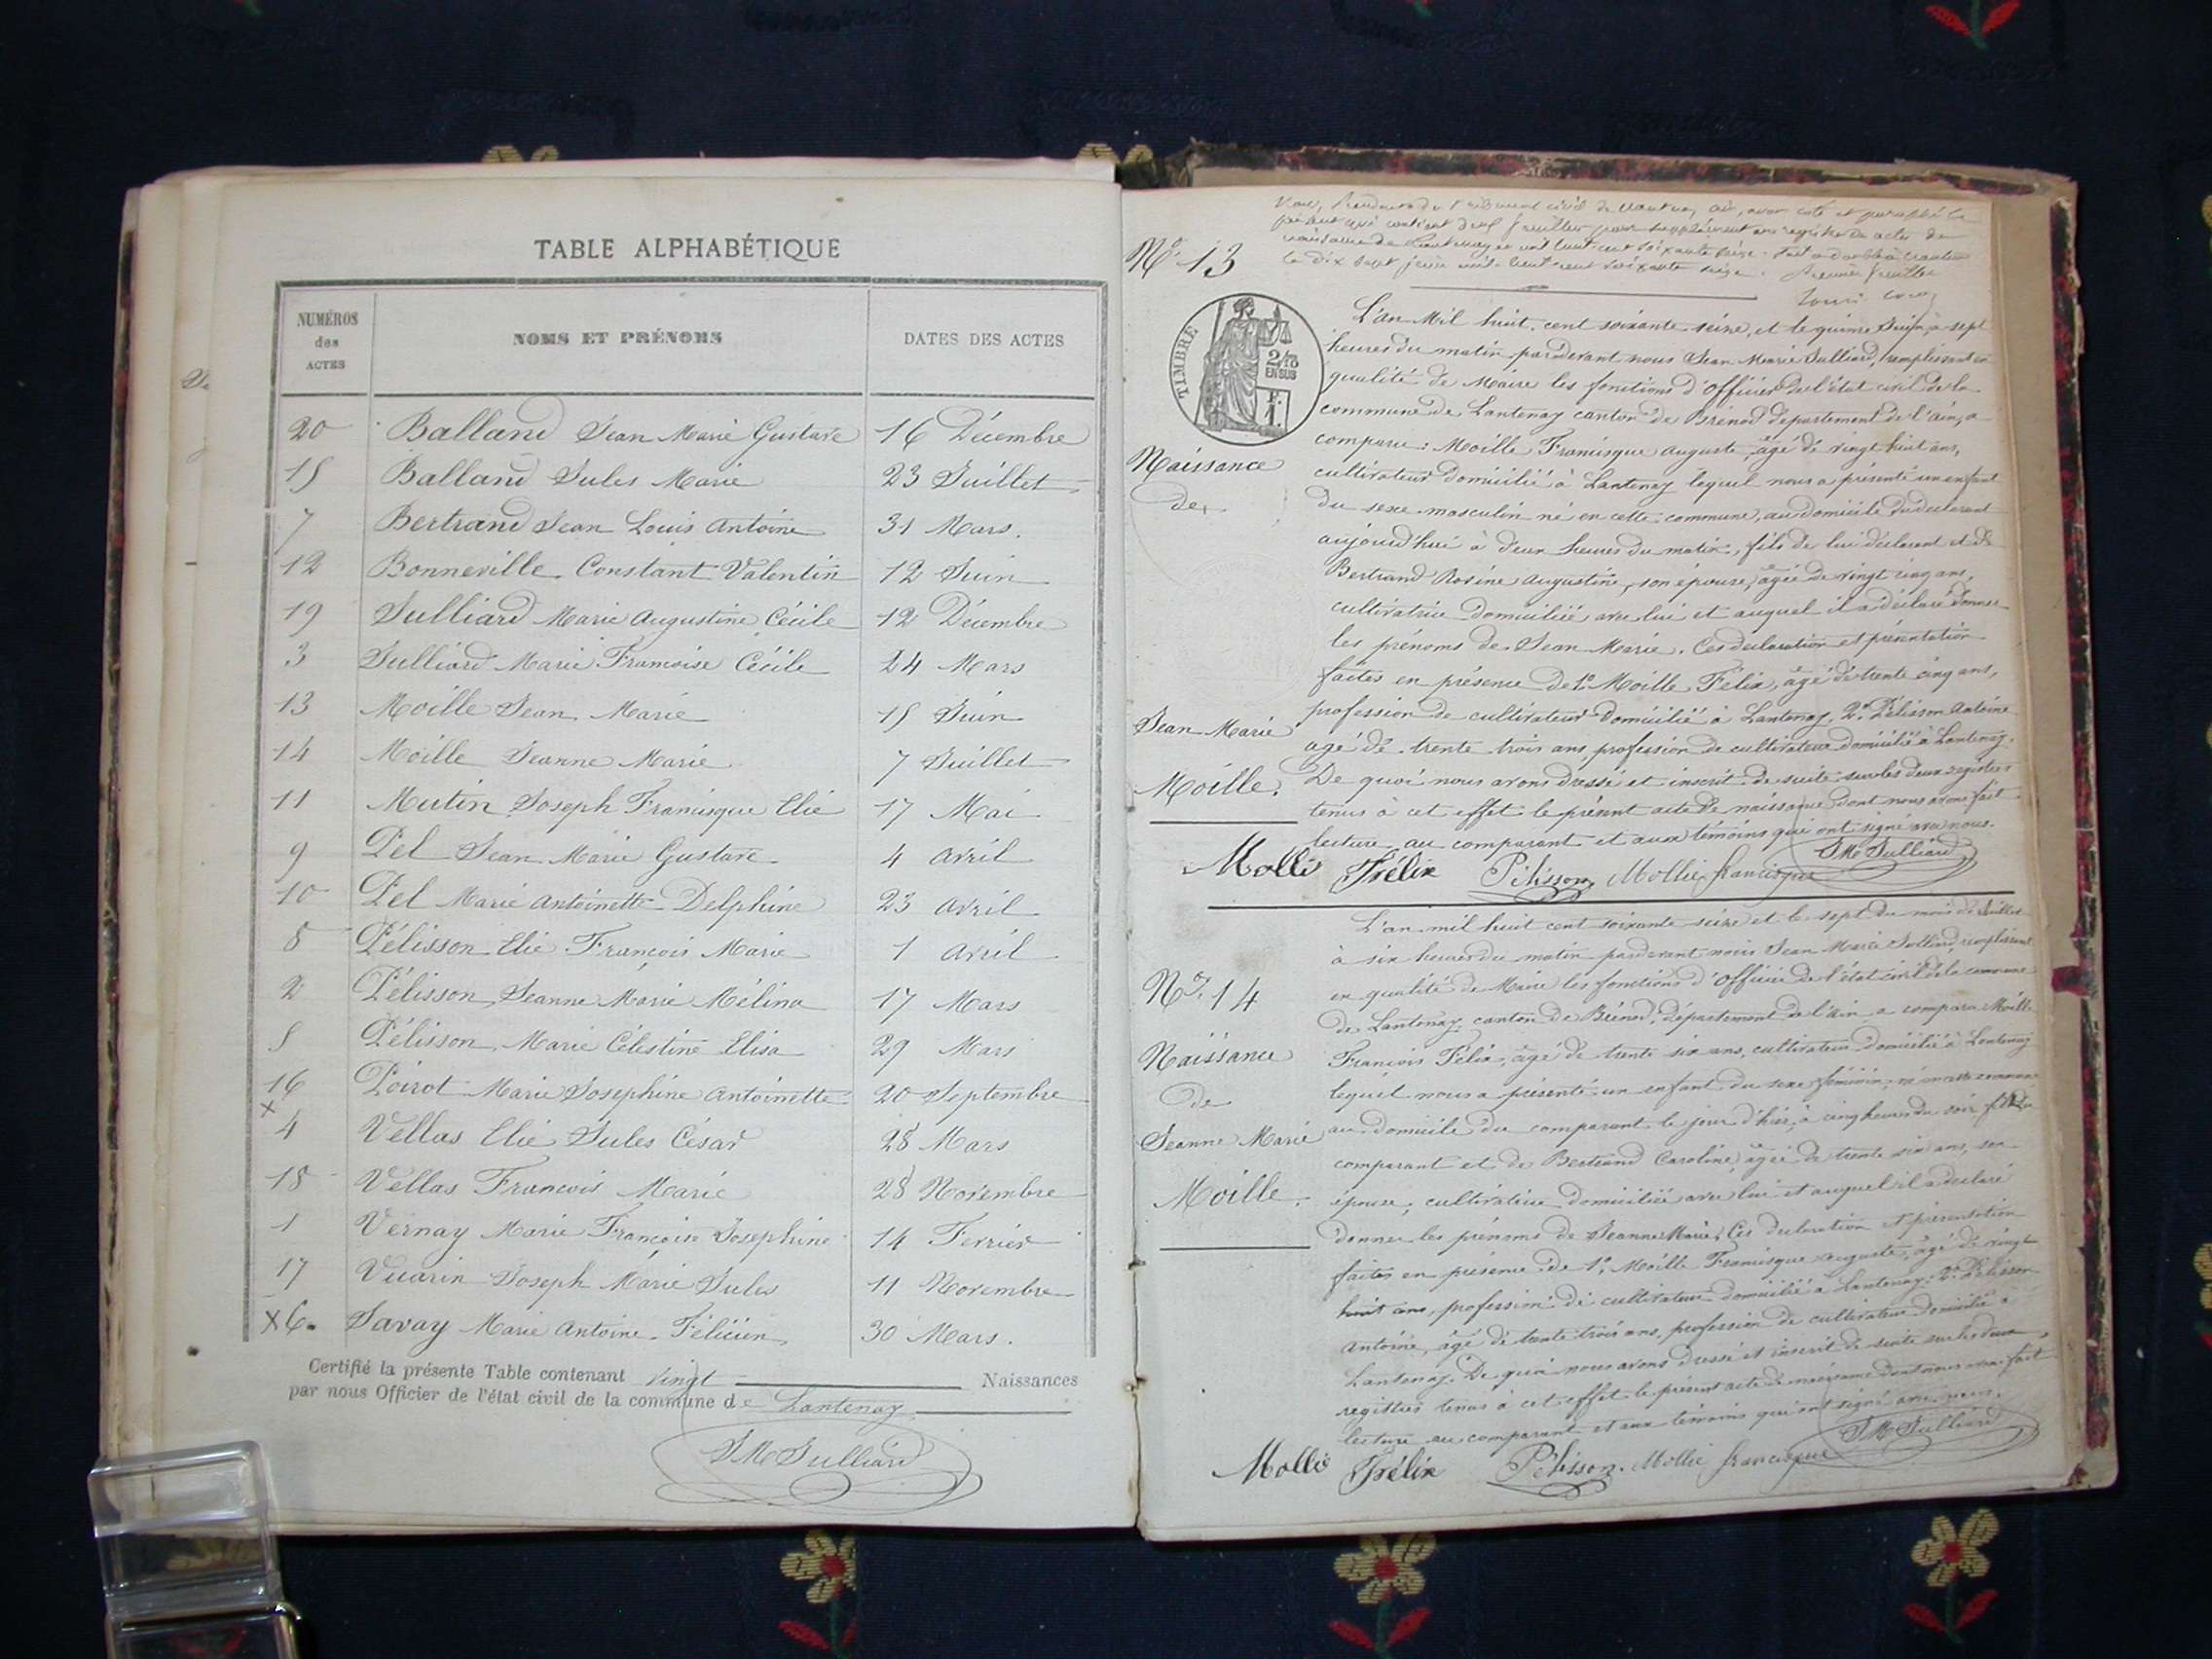 TABLE ALPHABÉTIQUE
NUMÉROS des ACTES
NOMS ET PRÉNOMS
DATES DES ACTES
20 Balland Jean Marie Gustave 16 Décembre
15 Balland Jules Marie 23 Juillet
7 Bertrand Jean Louis Antoine 31 Mars.
12 Bonneville Constant Valentin 12 Juin
19 Julliard Marie Augustine Cécile 12 Décembre
3 Julliard Marie Françoise Cécile 24 Mars
13 Moille Jean Marie 15 Juin
14 Moille Jeanne Marie 7 Juillet
11 Mutin Joseph Francisque Elie 17 Mai
9 Pel Jean Marie Gustave 4 Avril
10 Pel Marie Antoinette Delphine 23 Avril
8 Pélisson Elie François Marie 1 Avril
2 Pélisson Jeanne Marie Mélina 17 Mars
5 Pélisson Marie Célestine Elisa 29 Mars
16 Poirot Marie Joséphine Antoinette 20 Septembre
x
4 Vellas Elie Jules César 28 Mars
18 Vellas François Marie 28 Novembre
1 Vernay Marie Françoise Joséphine 14 Février
17 Vuarin Joseph Marie Jules 11 Novembre
X 6. Savay Marie Antoine Félicien 30 Mars.
Certifié la présente Table contenant Vingt Naissances
par nous Officier de l'état civil de la commune de Lantenay
JM Julliard
président du tribunal civil de Nantua, avoir coté et paraphé le
présent qui contient deux feuilles pour supplément au registre des actes de
naissance de Lantenay mil huit cent soixante seize. Fait à Nantua
le dix sept juin mil huit cent soixante seize. Premier feuillet
No. 13
TIMBRE
2/10 EN SUS
F. 1.
L'an Mil huit cent soixante seize, et le quinze Juin, à sept
heures du matin pardevant nous Jean Marie Julliard, remplissant en
qualité de Maire les fonctions d'officier de l'état civil de la
commune de Lantenay canton de Brénod département de l'ain, a
comparu: Moille Francisque Auguste, âgé de vingt huit ans,
cultivateur domicilié à Lantenay lequel nous a présenté un enfant
du sexe masculin né en cette commune, au domicile du déclarant
aujourd'hui à deux heures du matin, fils de lui déclarant et de
Bertrand Rosine Augustine, son épouse, âgée de vingt cinq ans,
cultivatrice domiciliée avec lui et auquel il a déclaré donner
les prénoms de Jean Marie. Ces déclaration et présentation
faites en présence de 1o. Moille Félix, âgé de trente cinq ans,
profession de cultivateur domicilié à Lantenay, 2o. Pélisson Antoine
âgé de trente trois ans, profession de cultivateur domicilié à Lantenay.
De quoi nous avons dressé et inscrit de suite sur les deux registres
tenus à cet effet le présent acte de naissance dont nous avons fait
lecture au comparant et aux témoins qui ont signé avec nous.
Naissance
de
Jean Marie
Moille.
Mollie Félix Pélisson Mollie francisque JM Julliard
No. 14
Naissance
de
Jeanne Marie
Moille.
L'an mil huit cent soixante seize et le sept du mois de Juillet
à six heures du matin pardevant nous Jean Marie Julliard remplissant
en qualité de Maire les fonctions d'officier de l'état civil de la commune
de Lantenay canton de Brénod, département de l'ain a comparu Moille
François Félix, âgé de trente six ans, cultivateur domicilié à Lantenay
lequel nous a présenté un enfant du sexe féminin, né en cette commune
au domicile du comparant le jour d'hier, à cinq heures du soir fille du
comparant et de Bertrand Caroline, âgée de trente six ans, son
épouse, cultivatrice domiciliée avec lui et auquel il a déclaré
donner les prénoms de Jeanne Marie. Ces déclaration et présentation
faites en présence de 1o. Moille Francisque Auguste, âgé de vingt
huit ans, profession de cultivateur domicilié à Lantenay, 2o. Pélisson
Antoine, âgé de trente trois ans, profession de cultivateur domicilié à
Lantenay. De quoi nous avons dressé et inscrit de suite sur les deux
registres tenus à cet effet le présent acte de naissance dont nous avons fait
lecture au comparant et aux témoins qui ont signé avec nous.
Mollie Félix Pélisson. Mollie francisque JM Julliard